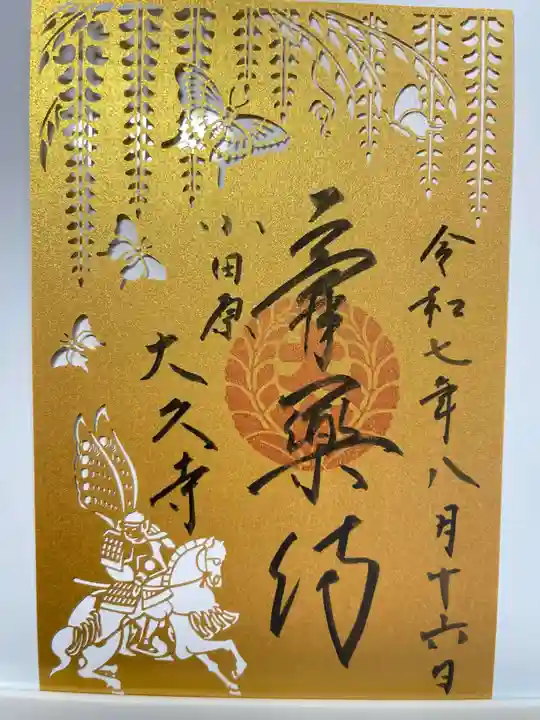 令和七年八月十六日
膏薬侍
小田原
大久寺